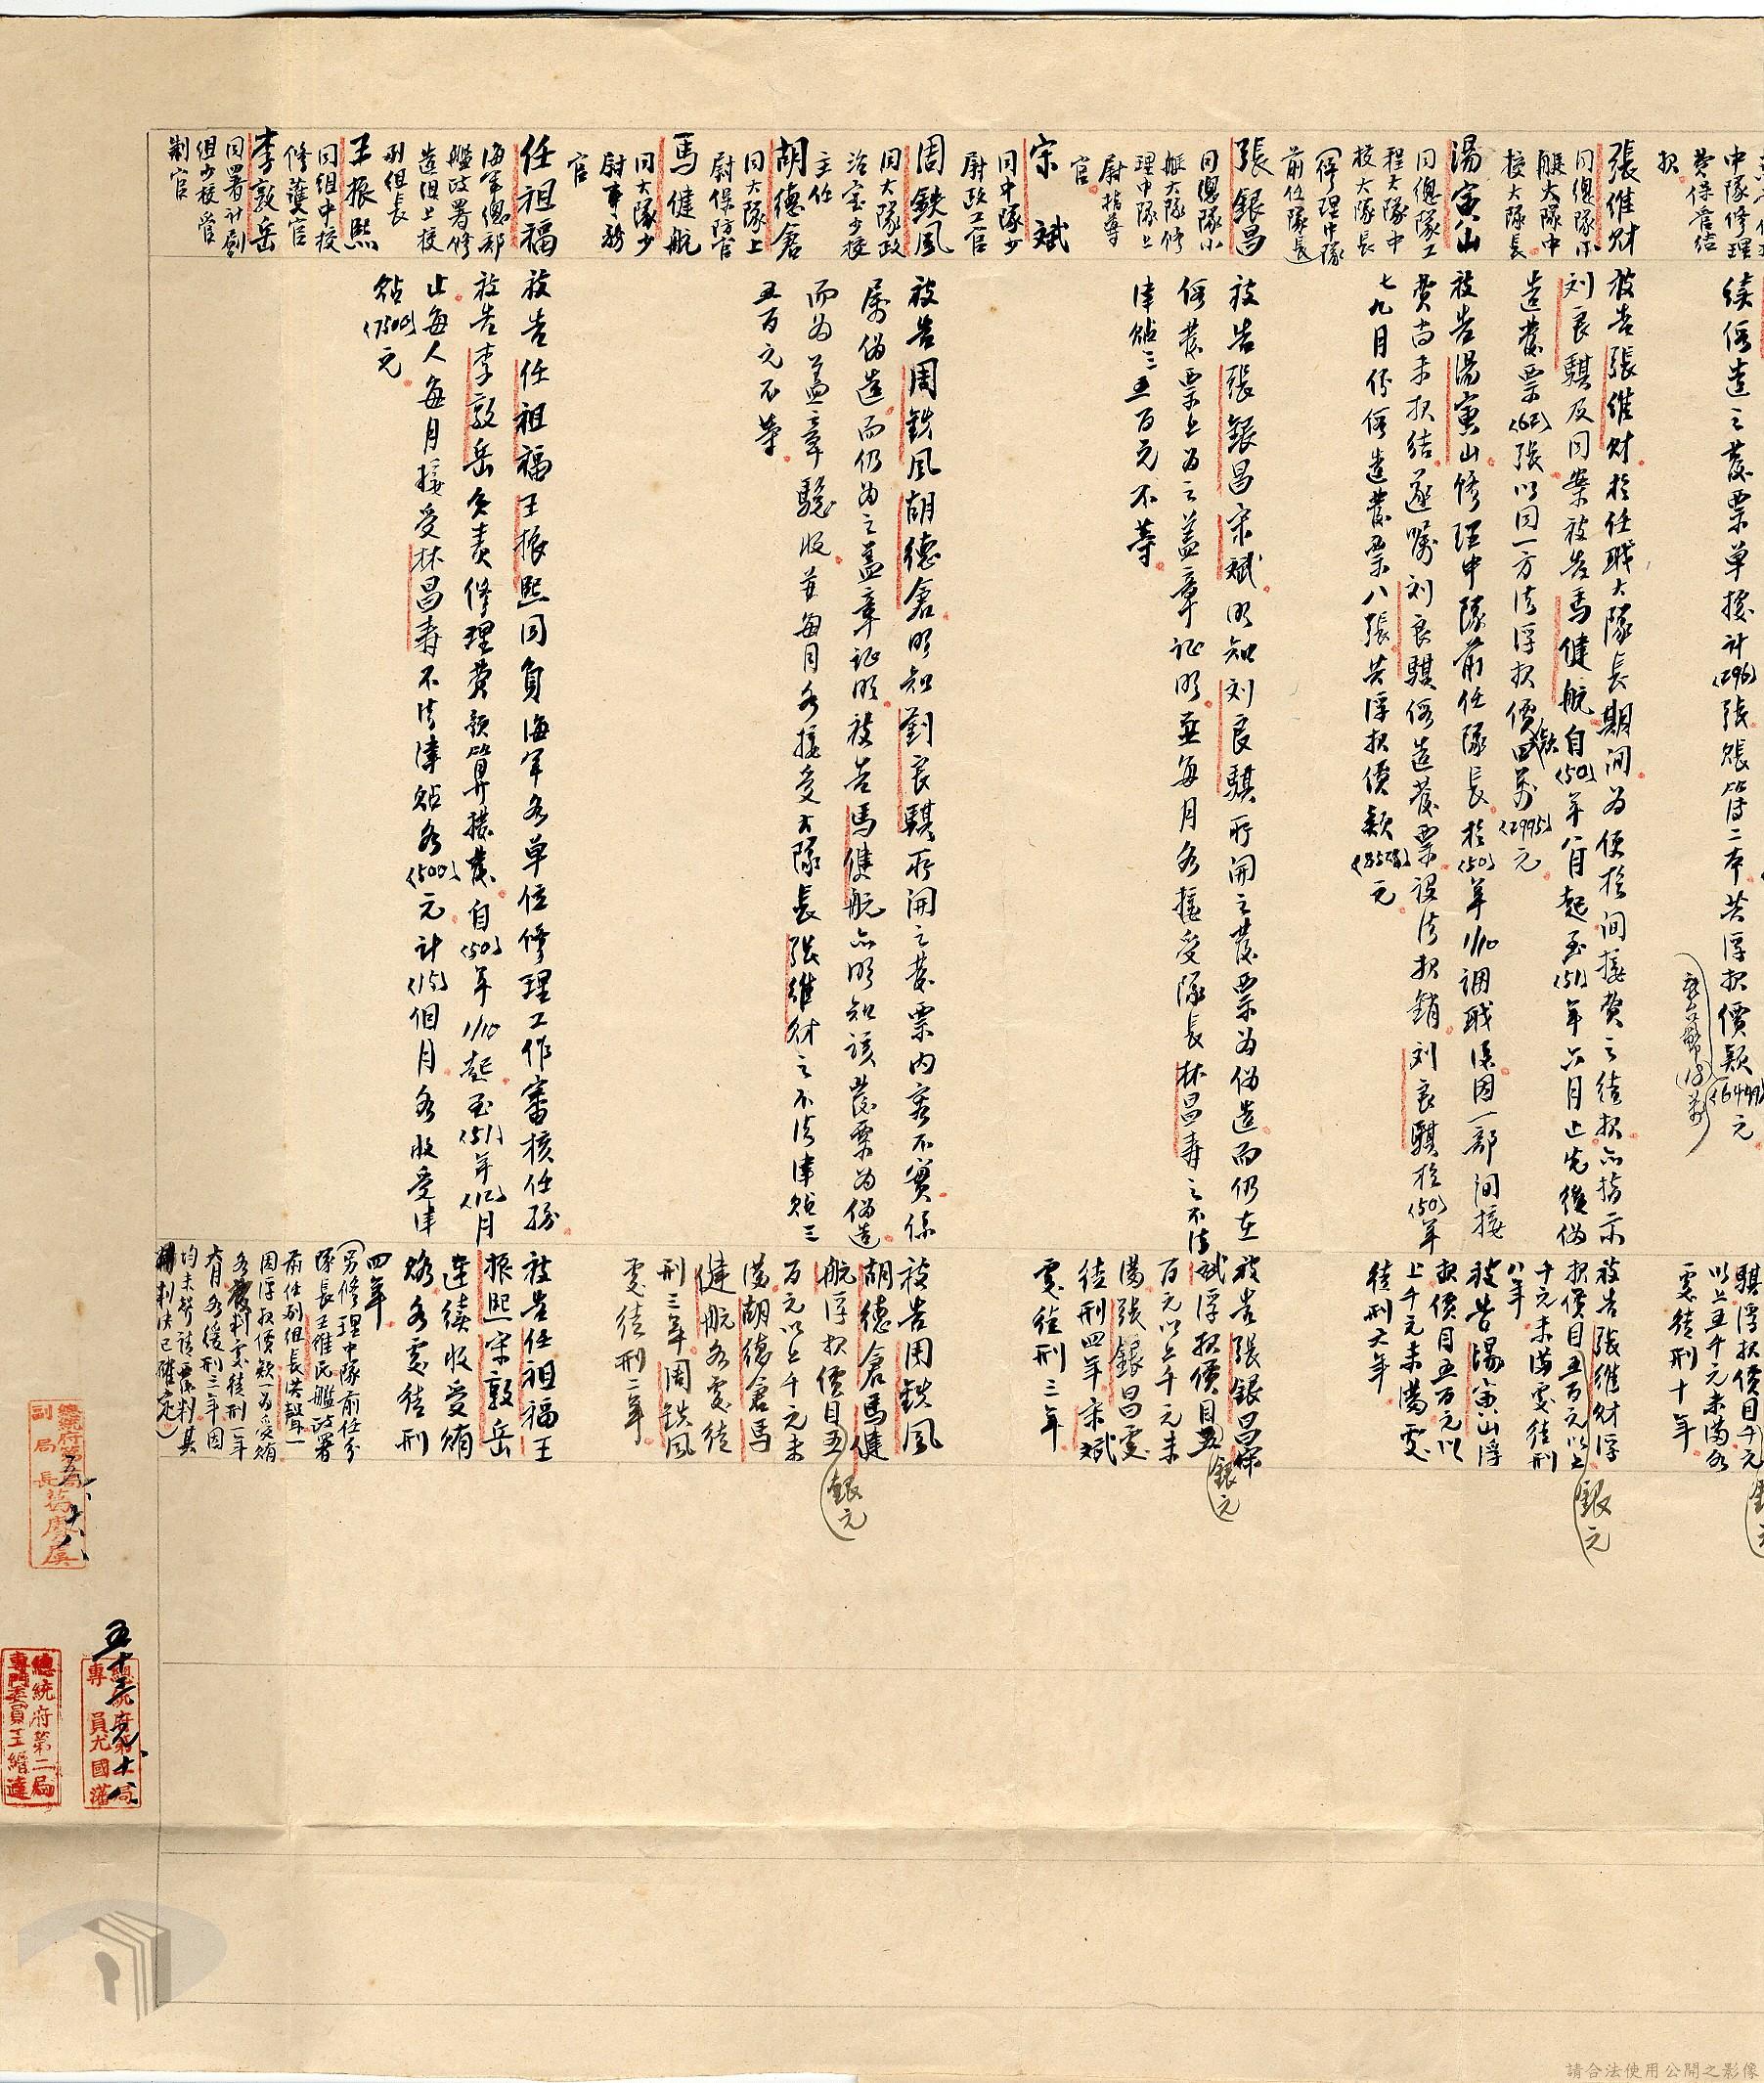 中隊修理
費保管結
報
張維財
同總隊小
艇大隊中
校大隊長
湯寅山
同總隊工
程大隊中
校大隊長
(修理中隊
前任隊長)
張銀昌
同總隊小
艇大隊修
理中隊上
尉指導
官
宋斌
同中隊少
尉政工官
周鉄風
同大隊政
治室少校
主任
胡德倉
同大隊上
尉保防官
馬健航
同大隊少
尉事務
官
任祖福
海軍總部
艦政署修
造組上校
副組長
王振熙
同組中校
修護官
李敦岳
同署計劃
組少校管
制官
續偽造之發票單據計(296)張賬皆二本共浮报價款(6499)元
被告張維財於任職大隊長期间为便於间接費之结报亦指示
刘良騏及同案被告馬健航自(50)年八月起至(51)年六月止先後偽
造發票(62)張以同一方法浮报價款四萬(2995)元
被告湯寅山修理中隊前任隊長於(50)年1/10調职后因一部间接
費尚未报结遂嘱刘良騏偽造發票設法报銷刘良騏於(50)年
七九月份偽造發票八張共浮报價款(8528)元
被告張銀昌宋斌明知刘良騏所開之發票为偽造而仍在
偽發票上为之盖章证明並每月各接受隊長林昌寿之不法
津貼三五百元不等
被告周鉄風胡德倉明知劉良騏所開之發票内容不實係
屬偽造而仍为之盖章证明被告馬健航亦明知該發票为偽造
而为盖章驗收並每月各接受大隊長張維財之不法津貼三
五百元不等
被告任祖福王振熙同負海軍各單位修理工作審核任務
被告李敦岳負責修理費預算撥發自(50)年1/10起至(51)年(12)月
止每人每月接受林昌寿不法津貼各(500)元計(15)個月各收受津
貼(7500)元
騏浮报價目千元
以上五千元未滿各
處徒刑十年
被告張維財浮
报價目五百元以上
千元未滿處徒刑
八年
銀元
被告湯寅山浮
报價目五百元以
上千元未滿處
徒刑六年
被告張銀昌宋
斌浮报價目五
百元以上千元未
滿張銀昌處
徒刑四年宋斌
處徒刑三年
銀元
被告周鉄風
胡德倉馬健
航浮报價目五
百元以上千元未
滿胡德倉馬
健航各處徒
刑三年周鉄風
處徒刑二年
銀元
被告任祖福王
振熙宋敦岳
連續收受賄
賂各處徒刑
四年
(另修理中隊前任分
隊長王維民艦政署
前任副組長洪聲一
因浮报價款一为受賄
各處徒刑一年
六月各缓刑三年因
均未聲請覆判其
判决已確定)
副局長
五十三
九、十八
總統府第二局
專員尤國藩
總統府第二局
專門委員王縉達
請合法使用公開之影像